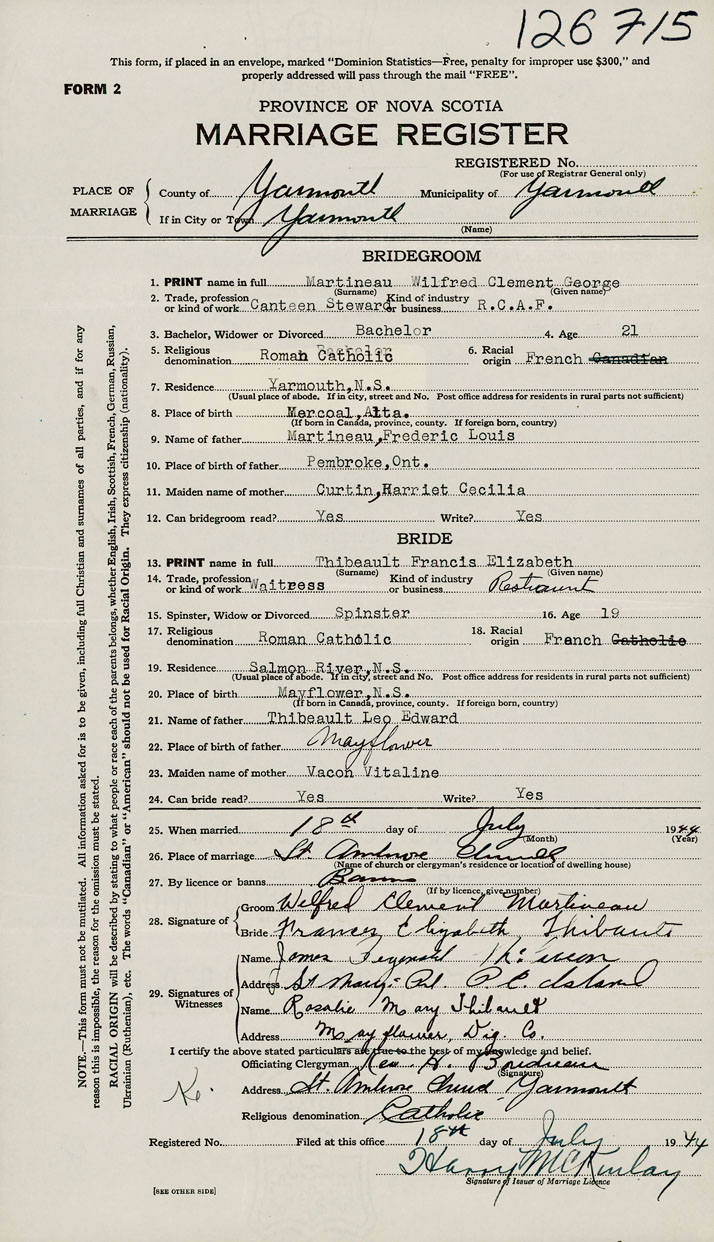 126715
This form, if placed in an envelope, marked "Dominion Statistics—Free, penalty for improper use $300," and
properly addressed will pass through the mail "FREE".
FORM 2
PROVINCE OF NOVA SCOTIA
MARRIAGE REGISTER
REGISTERED No.
(For use of Registrar General only)
PLACE OF MARRIAGE
County of Yarmouth Municipality of Yarmouth
If in City or Town Yarmouth
(Name)
BRIDEGROOM
1. PRINT name in full Martineau Wilfred Clement George
(Surname) (Given name)
2. Trade, profession or kind of work Canteen Steward Kind of industry or business R.C.A.F.
3. Bachelor, Widower or Divorced Bachelor 4. Age 21
5. Religious denomination Roman Catholic 6. Racial origin French Canadian
7. Residence Yarmouth,N.S.
(Usual place of abode. If in city, street and No. Post office address for residents in rural parts not sufficient)
8. Place of birth Mercoal,Alta.
(If born in Canada, province, county. If foreign born, country)
9. Name of father Martineau,Frederic Louis
10. Place of birth of father Pembroke,Ont.
11. Maiden name of mother Curtin,Harriet Cecilia
12. Can bridegroom read? Yes Write? Yes
BRIDE
13. PRINT name in full Thibeault Francis Elizabeth
(Surname) (Given name)
14. Trade, profession or kind of work Waitress Kind of industry or business Restraunt
15. Spinster, Widow or Divorced Spinster 16. Age 19
17. Religious denomination Roman Catholic 18. Racial origin French Catholic
19. Residence Salmon River,N.S.
(Usual place of abode. If in city, street and No. Post office address for residents in rural parts not sufficient)
20. Place of birth Mayflower,N.S.
(If born in Canada, province, county. If foreign born, country)
21. Name of father Thibeault Leo Edward
22. Place of birth of father Mayflower
23. Maiden name of mother Vacon Vitaline
24. Can bride read? Yes Write? Yes
25. When married 18th day of July 1944
(Month) (Year)
26. Place of marriage St. Ambrose Church
(Name of church or clergyman's residence or location of dwelling house)
27. By licence or banns Banns
(If by licence, give number)
28. Signature of
Groom Wilfred Clement Martineau
Bride Frances Elizabeth Thibault
29. Signatures of Witnesses
Name James
Address St Mary's Rd. P.E. Island
Name Rosalie Mary Thibault
Address Mayflower, Dig. Co.
I certify the above stated particulars are true to the best of my knowledge and belief.
Officiating Clergyman Rev. Boudreau
(Signature)
Address St. Ambrose Church Yarmouth
Religious denomination Catholic
Registered No. Filed at this office 18th day of July 1944
Harry McKinlay
Signature of Issuer of Marriage Licence
[SEE OTHER SIDE]
NOTE.—This form must not be mutilated. All information asked for is to be given, including full Christian and surnames of all parties, and if for any
reason this is impossible, the reason for the omission must be stated.
RACIAL ORIGIN will be described by stating to what people or race each of the parents belongs, whether English, Irish, Scottish, French, German, Russian,
Ukrainian (Ruthenian), etc. The words "Canadian" or "American" should not be used for Racial Origin. They express citizenship (nationality).